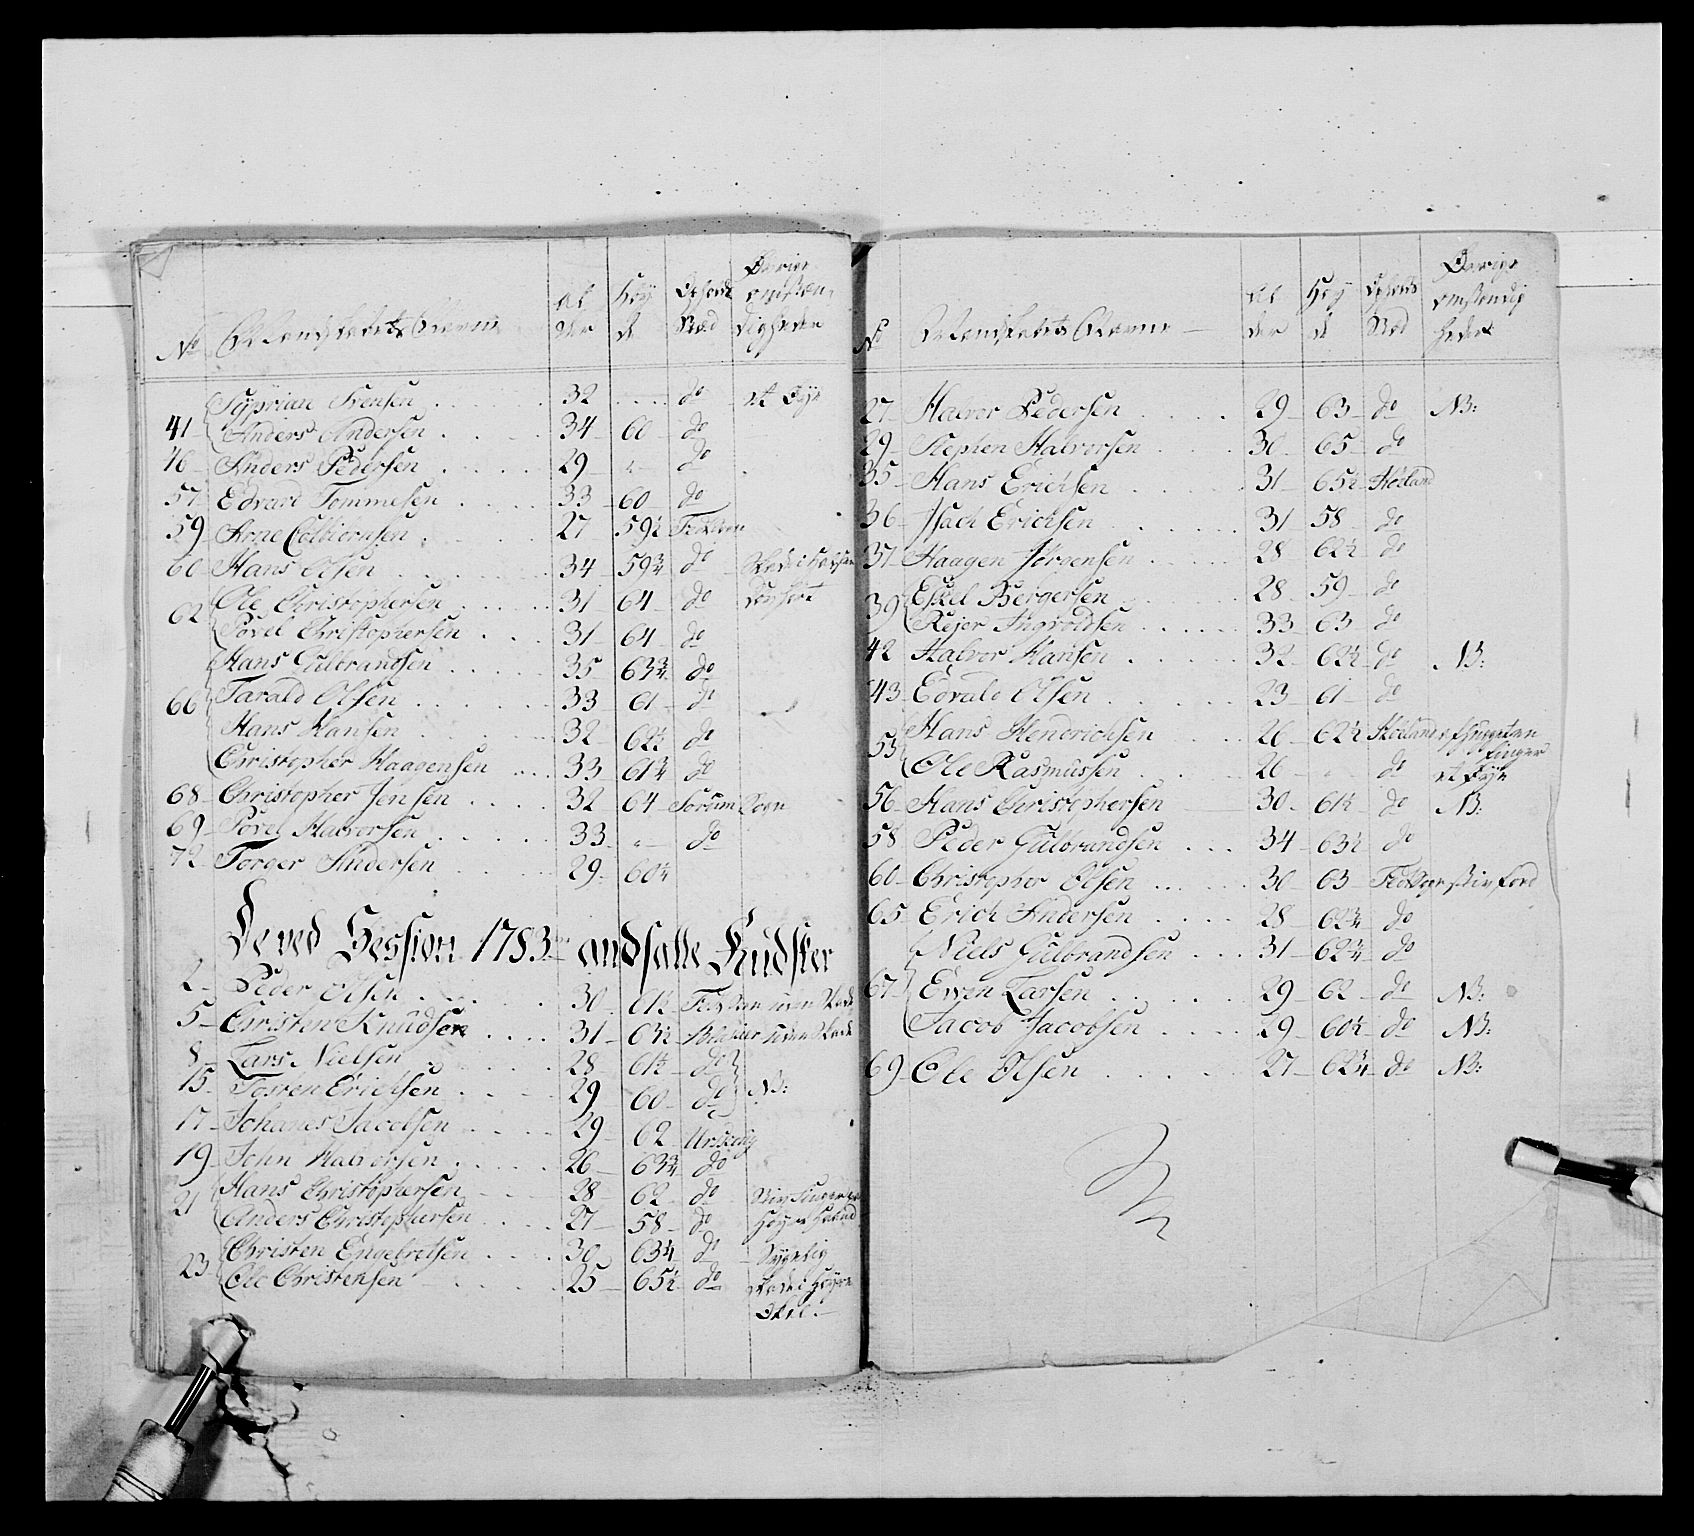 No Mandskabets Navne Al der Høy de Opholds Stæd Øvrige omstæn, digheder
Syprian Svensen 32 do et Øye
41 Anders Andersen 34 60 do
46 Anders Pedersen 29 " do
57 Edvard Tommesen 33 60 do
59 Arne Colbiornsen 27 59½
60 Hans Olsen 34 59¾ do
62 Ole Christophersen 31 64 do
Povel Christophersen 31 64 do
Hans Gulbrandsen 35 63¾ do
66 Tarald Olsen 33 61 do
Hans Hansen 32 62½ do
Christopher Haagensen 33 61¾ do
68 Christopher Jensen 32 64 Sorum Sogn
69 Povel Halvorsen 33 " do
72 Torger Andersen 29 60¼
De ved Session 1783 andsatte Kudsker
2 Peder Olsen 30 61½
5 Christen Knudsen 31 63½
8 Lars Nielsen 28 61½ do
15 Tosten Erichsen 29 60 do NB:
17 Johanes Jacobsen 29 62 Urschoug
19 John Halvorsen 26 63¾ do
21 Hans Christophersen 28 62 do
Anders Christophersen 27 58 do høyre haand
23 Christen Engebretsen 30 63¼ do Sygelig
Ole Christensen 25 65½ do skade i høyre
No Mandskabets Navne Al der Høy de Opholds Stæd Øvrige omstændig heder
27 Halvor Pedersen 29 63 do NB:
29 Stephen Halvorsen 30 65 do
35 Hans Erichsen 31 65½ Høland
36 Isach Erichsen 31 58 do
37 Haagen Jørgensen 28 62½ do
39 Eskel Bergersen 28 59 do
Rejer Ingvoldsen 33 63 do
42 Halvor Hansen 32 62½ do NB:
43 Edvald Olsen 23 61 do
53 Hans Hendrichsen 26 62½ Høeland finger
Ole Rasmussen 26 " do et Øye
56 Hans Christophersen 30 61½ do NB:
58 Peder Gulbrandsen 34 63½ do
60 Christopher Olsen 30 63
65 Erich Andersen 28 62¾ do
Niels Gulbrandsen 31 62¾ do
67 Even Larsen 29 62 do NB:
Jacob Jacobsen 29 60½ do NB:
69 Ole Olsen 27 62¾ do NB: